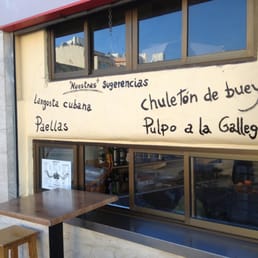 "Nuestras" Sugerencias
Langosta cubana
Chuletón de buey
Paellas
Pulpo a la Galleg